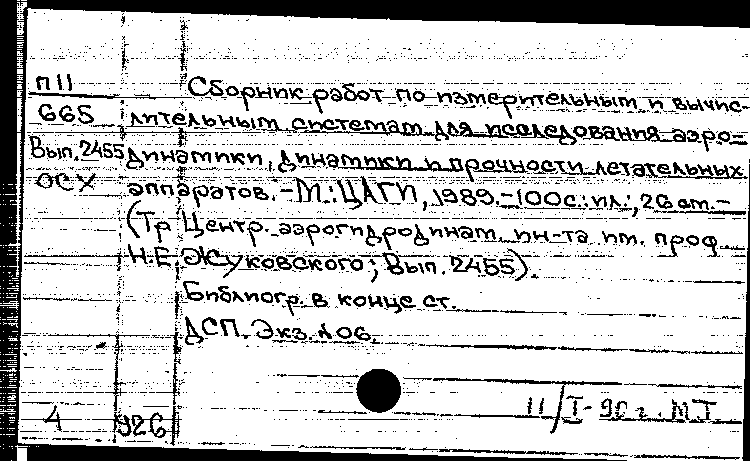 П11
665
Вып. 2455
ОСХ
Сборник работ по измерительным и вычис-
лительным системам для исследования аэро-
динамики, динамики и прочности летательных
аппаратов. - М.: ЦАГИ, 1989. - 100с.: ил.; 26 см. -
(Тр Центр. аэрогидродинам. ин-та им. проф
Н.Е. Жуковского; Вып. 2455).
Библиогр. в конце ст.
ДСП. Экз. №06.
11/I-90г. М.Т.
4 926